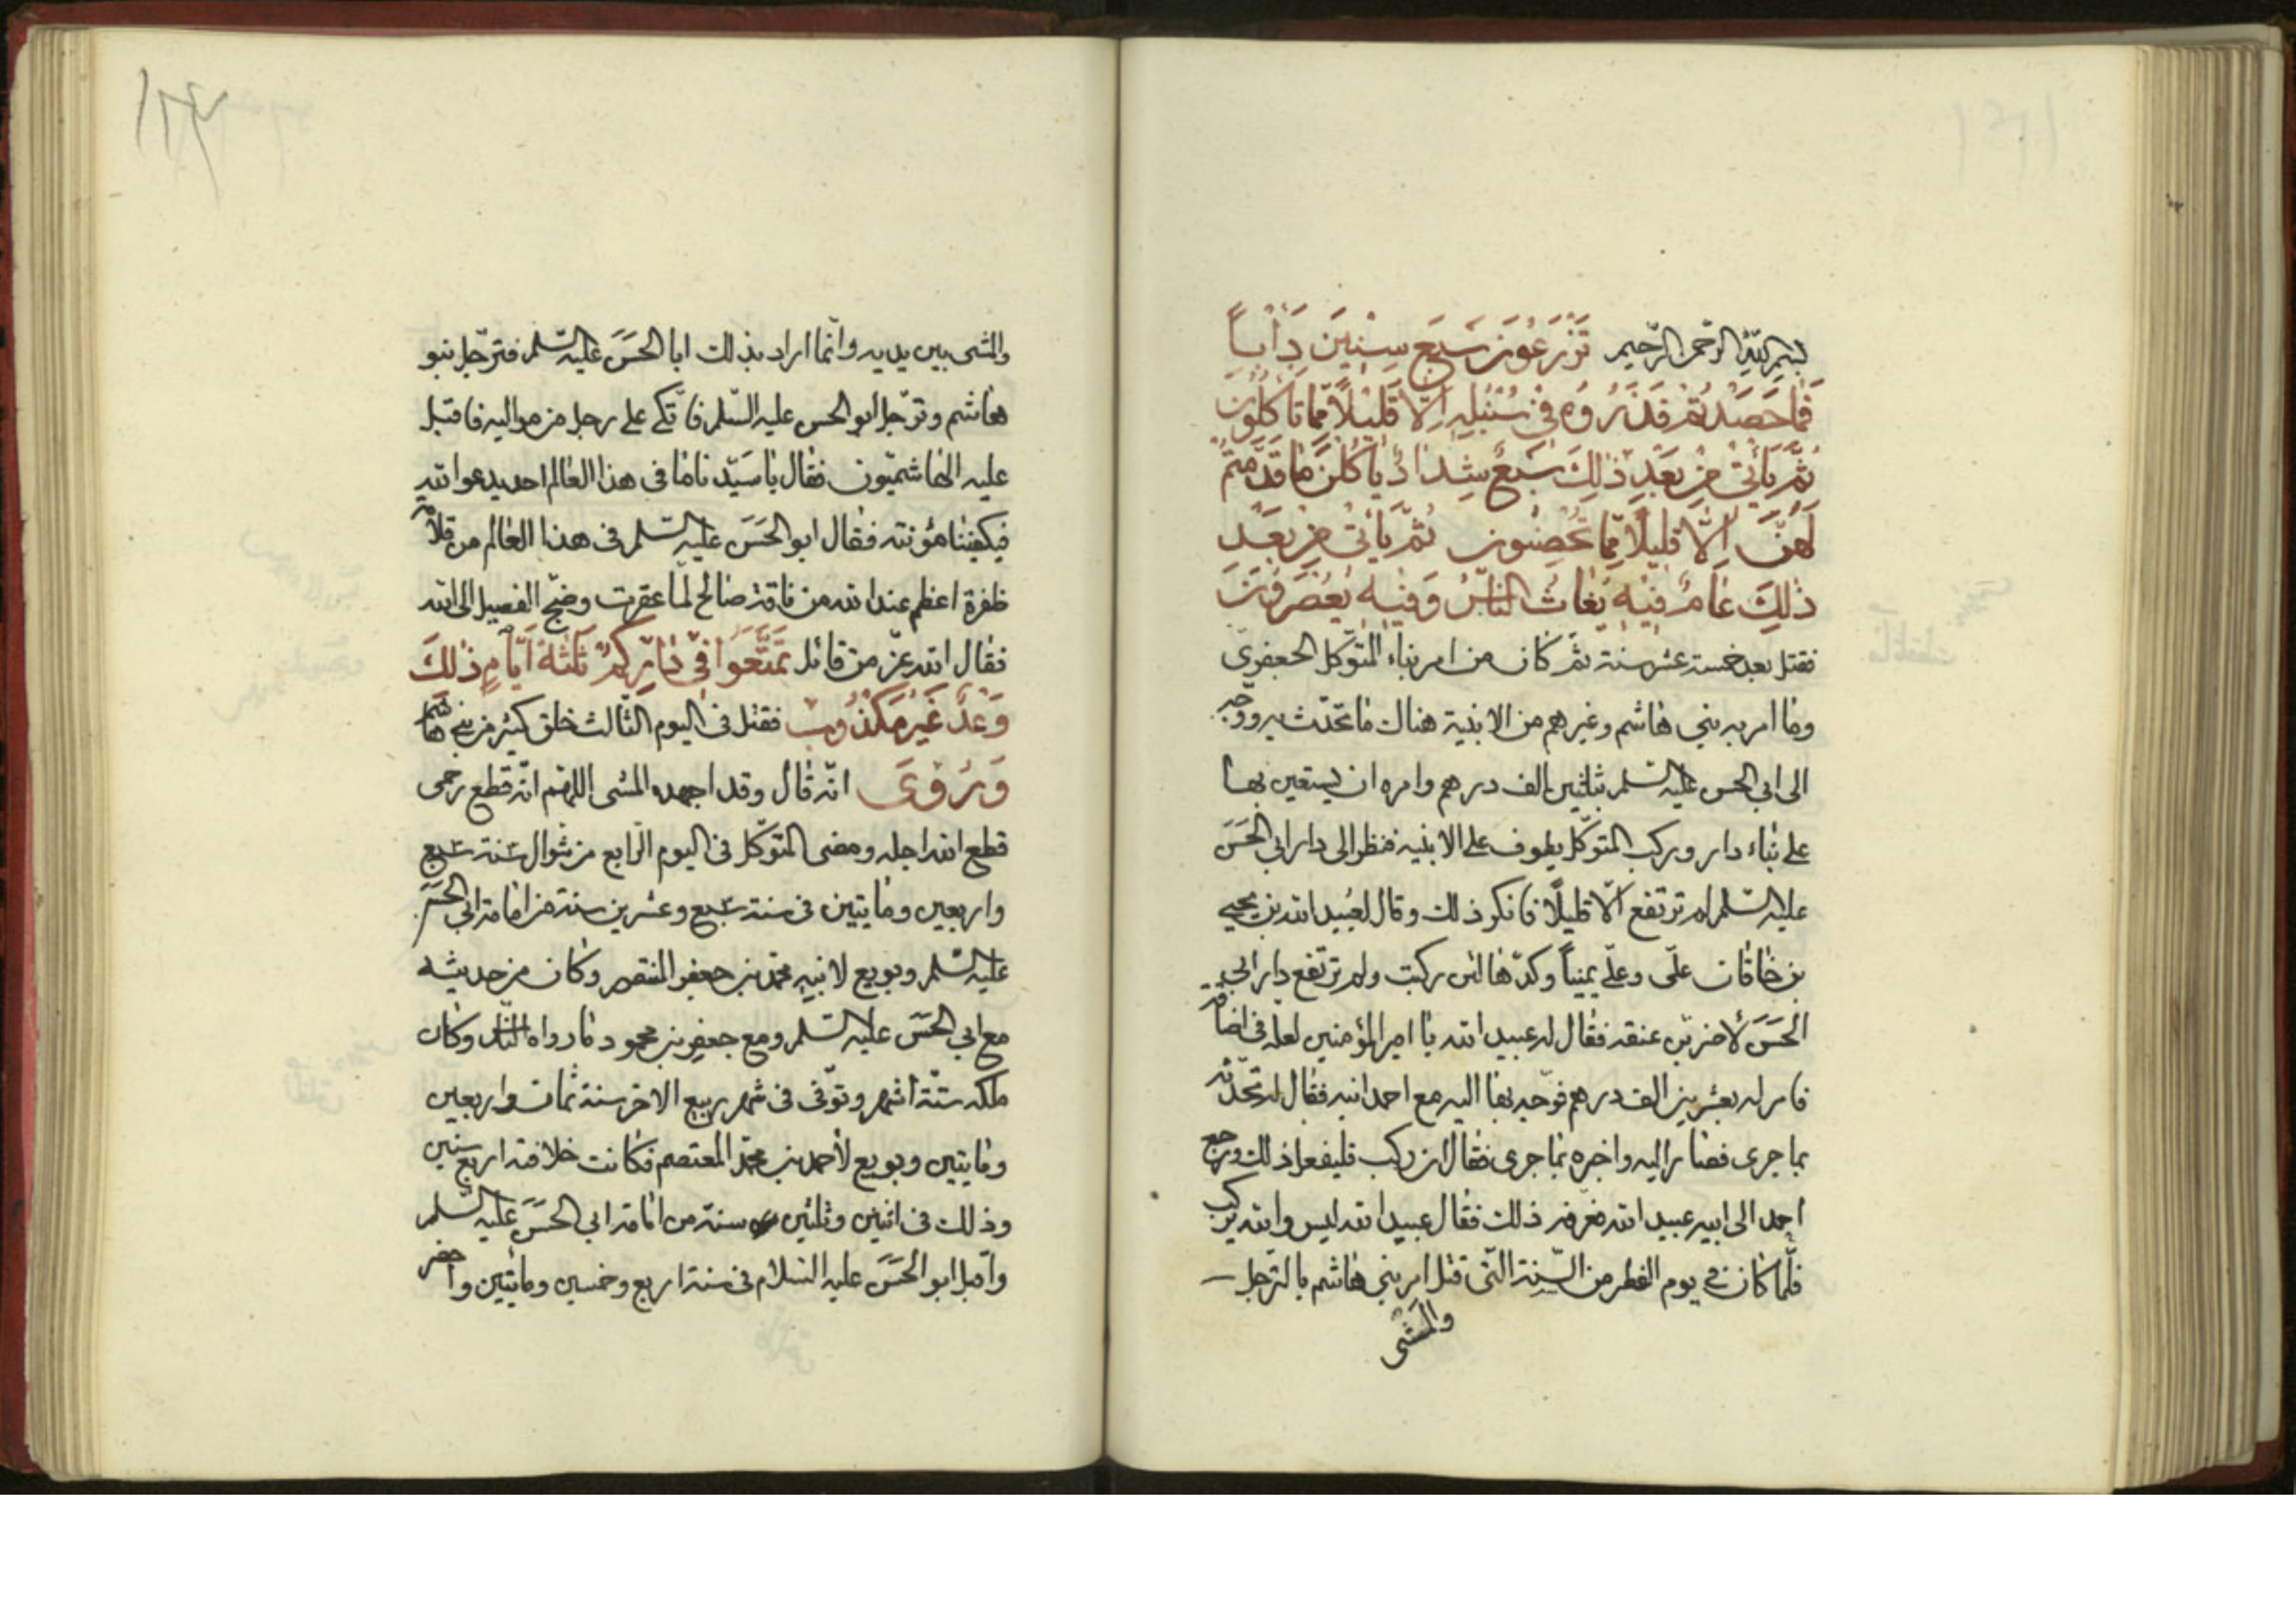 بسم الله الرحمن الرحيم تَزْرَعُونَ سَبْعَ سِنِينَ دَأَباً
فَمَا حَصَدْتُمْ فَذَرُوهُ فِي سُنْبُلِهِ إِلّا قَلِيلاً مِمّا تَأْكُلُونَ
ثُمَّ يَأْتِي مِنْ بَعْدِ ذٰلِكَ سَبْعٌ شِدَادٌ يَأْكُلْنَ مَا قَدَّمْتُمْ
لَهُنَّ إِلَّا قَلِيلاً مِمَّا تُحْصِنُونَ ثُمَّ يَأْتِي مِنْ بَعْدِ
ذٰلِكَ عَامٌ فِيهِ يُغَاثُ النَّاسُ وَفِيهِ يَعْصِرُونَ
فقتل بعد خمسة عشر سنة ثم كان من امر بناء المتوكل الجعفري
وما امر به بني هاشم وغيرهم من الابنية هناك ما تحدّث به ووجّه
الى ابي الحسن عليه السّلم بثلثين الف درهم وامره ان يستعين بها
على بناء دار وركب المتوكّل يطوف على الابنيه فنظر الى دار ابي الحَسَن
عليه السّلم لم ترتفع الّا قليلاً فانكر ذلك وقال لعُبيد الله بن يحيى
بن خاقان علّى وعلّى يميناً وكدّها لئن ركبت ولم ترتفع دار ابي
الحَسَن لأضربّن عنقه فقال له عبيد الله يا امير المؤمنين لعله في اضاقة
فامر له بعشرين الف درهم فوجّه بها اليه مع احمد ابنه فقال له تحدّثه
بما جرى فصار اليه واخبره بما جرى فقال ان ركب فليفعل ذلك ورجع
احمد الى ابيه عبيد الله فعرفه ذلك فقال عبيد الله ليس والله يركب
فلّما كان في يوم الفطر من السّنة التّى قتل امر بني هاشم بالترجل
والمَشى
والمشى بين يديه وانّما اراد بذلك ابا الحَسَن عليه السّلم فترجّل بنو
هاشم وترجّل ابو الحسن عليه السّلم فاتّكى على رجل من مواليه فاقبل
عليه الهاشميّون فقال يا سَيّدنا ما فى هذا العالم احد يدعو الله
فيكفينا مؤنته فقال ابو الحَسَن عليه السّلم فى هذا العالم من قلامة
ظفره اعظم عند الله من ناقة صالح لمّا عقرت وضجّ الفصيل الى الله
فقال الله عزّ من قائل تَمَتَّعُوا فِي دَارِكُمْ ثَلٰثَةَ أَيَّامٍ ذٰلِكَ
وَعْدٌ غَيْرُ مَكْذُوبٍ فقتل فى اليوم الثّالث خلق كثير من بني هاشم
وَرُوِيَ انّه قال وقد اجهده المشى اللهّم انّه قطع رحمى
قطع الله اجله ومضى المتوكّل فى اليوم الرّابع من شوال سنة سبع
واربعين ومايتين فى سنة سبع وعشرين سنة من امامة ابي الحَسَن
عليه السّلم وبويع لابنه محمّد بن جعفر المنتصر وكان من حديثه
مع ابي الحَسَن عليه السّلم ومع جعفر بن محمود ما رواه النّاس وكان
ملكه ستّة أشهر وتوّفى فى شهر ربيع الاخر سنة ثمان واربعين
ومايتين وبويع لأحمد بن محمّد المعتصم فكانت خلافته اربع سنين
وذلك فى اثنين وثلثين سنة من امامة ابي الحَسَن عليه السّلم
واقبل ابو الحَسَن عليه السّلام فى سنة اربع وخمسين ومائتين واحضر